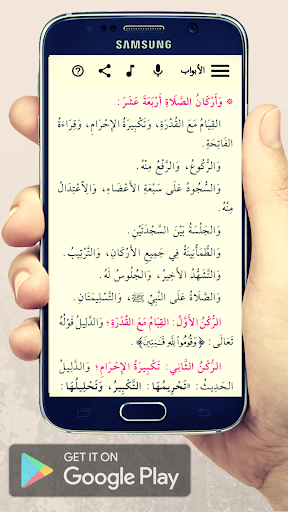 SAMSUNG
الأبواب
* وَأَرْكَانُ الصَّلَاةِ أَرْبَعَةَ عَشَرَ:
القِيَامُ مَعَ القُدْرَةِ، وَتَكْبِيرَةُ الإِحْرَامِ، وَقِرَاءَةُ
الفَاتِحَةِ.
وَالرُّكُوعُ، وَالرَّفْعُ مِنْهُ.
وَالسُّجُودُ عَلَى سَبْعَةِ الأَعْضَاءِ، وَالِاعْتِدَالُ
مِنْهُ.
وَالجَلْسَةُ بَيْنَ السَّجْدَتَيْنِ.
وَالطُّمَأْنِينَةُ فِي جَمِيعِ الأَرْكَانِ، وَالتَّرْتِيبُ.
وَالتَّشَهُّدُ الأَخِيرُ، وَالجُلُوسُ لَهُ.
وَالصَّلَاةُ عَلَى النَّبِيِّ ﷺ، وَالتَّسْلِيمَتَانِ.
الرُّكْنُ الأَوَّلُ: القِيَامُ مَعَ القُدْرَةِ؛ وَالدَّلِيلُ قَوْلُهُ
تَعَالَى: ﴿وَقُومُوا لِلَّهِ قَانِتِينَ﴾.
الرُّكْنُ الثَّانِي: تَكْبِيرَةُ الإِحْرَامِ؛ وَالدَّلِيلُ
الحَدِيثُ: «تَحْرِيمُهَا: التَّكْبِيرُ، وَتَحْلِيلُهَا:
GET IT ON
Google Play